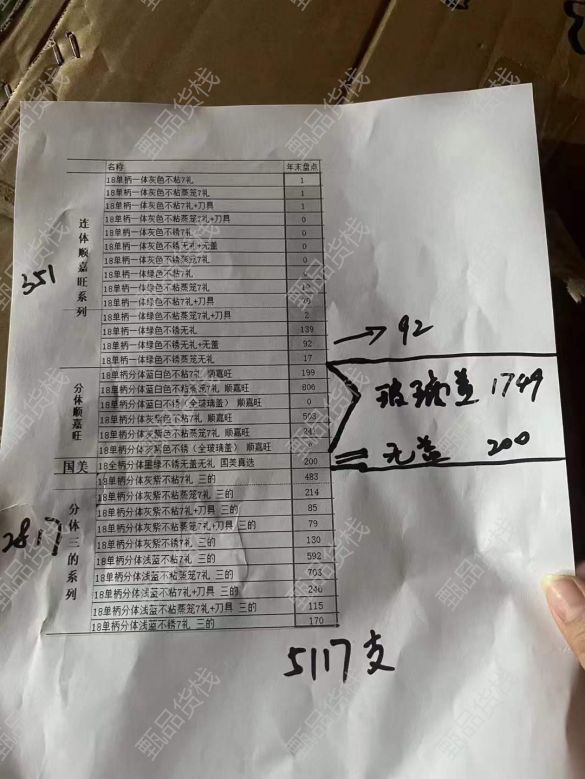 名称 年末盘点
连体顺嘉旺系列
18单柄一体灰色不粘7礼 1
18单柄一体灰色不粘蒸笼7礼 1
18单柄一体灰色不粘7礼+刀具 1
18单柄一体灰色不粘蒸笼7礼+刀具 0
18单柄一体灰色不锈7礼 0
18单柄一体灰色不锈无礼+无盖 0
18单柄一体灰色不锈蒸笼7礼 0
18单柄一体绿色不粘7礼
18单柄一体绿色不粘蒸笼7礼
18单柄一体绿色不粘7礼+刀具
18单柄一体绿色不粘蒸笼7礼+刀具 2
18单柄一体绿色不锈无礼 139
18单柄一体绿色不锈无礼+无盖 92
18单柄一体绿色不锈蒸笼无礼 17
351
→ 92
分体顺嘉旺
18单柄分体蓝白色不粘7礼 顺嘉旺 199
18单柄分体蓝白色不粘蒸笼7礼 顺嘉旺 806
18单柄分体蓝白不锈(全玻璃盖) 顺嘉旺 0
18单柄分体灰紫色不粘7礼 顺嘉旺 503
18单柄分体灰紫色不粘蒸笼7礼 顺嘉旺 241
18单柄分体灰紫色不锈(全玻璃盖) 顺嘉旺
玻璃盖 1749
国美
18全柄分体墨绿不锈无盖无礼 国美真选 200
无盖 200
分体三的系列
18单柄分体灰紫不粘7礼 三的 483
18单柄分体灰紫不粘蒸笼7礼 三的 214
18单柄分体灰紫不粘7礼+刀具 三的 85
18单柄分体灰紫不粘蒸笼7礼+刀具 三的 79
18单柄分体灰紫不锈7礼 三的 130
18单柄分体浅蓝不粘7礼 三的 592
18单柄分体浅蓝不粘蒸笼7礼 三的 703
18单柄分体浅蓝不粘7礼+刀具 三的 246
18单柄分体浅蓝不粘蒸笼7礼+刀具 三的 115
18单柄分体浅蓝不锈7礼 三的 170
2817
5117支
甄品货栈